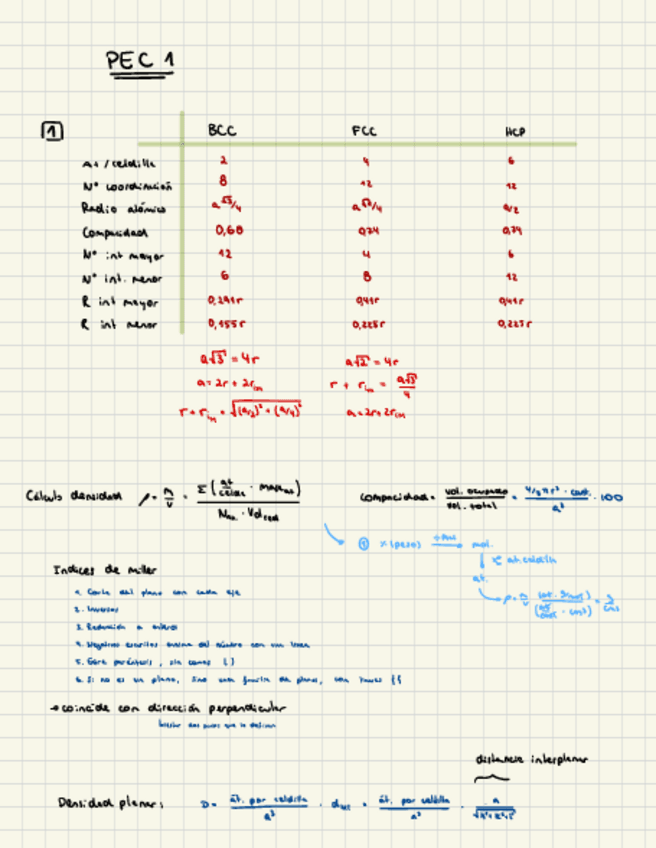 PEC 1
1
BCC FCC HCP
At/celdilla 2 4 6
Nº coordinación 8 12 12
Radio atómico a√3/4 a√2/4 a/2
Compacidad 0,68 0,74 0,74
Nº int mayor 12 4 6
Nº int. menor 6 8 12
R int mayor 0,291r 0,41r 0,41r
R int menor 0,155r 0,225r 0,225r
a√3 = 4r a√2 = 4r
a = 2r + 2r_in r + r_in = a√3/4
r + r_in = √((a/2)² + (a/4)²) a = 2r + 2r_in
Cálculo densidad ρ = m/v = Σ(at/celda · masa at)/(N_av · Vol_red)
Compacidad = vol. ocupado/vol. total = 4/3πr³ · cant./a³ · 100
① % (peso) mol.
at. celdilla
at.
Indices de miller
1. Corte del plano con cada eje
2. Inversos
3. Reducción a enteros
4. Negativos escritos encima del número con una línea
5. Entre paréntesis, sin comas ( )
6. Si no es un plano, sino una familia de planos, con llaves {{
→ coincide con dirección perpendicular
distancia interplanar
Densidad planar: D = át. por celdilla/a³ · d_hkl = át. por celdilla/a³ · a/√(h²+k²+l²)